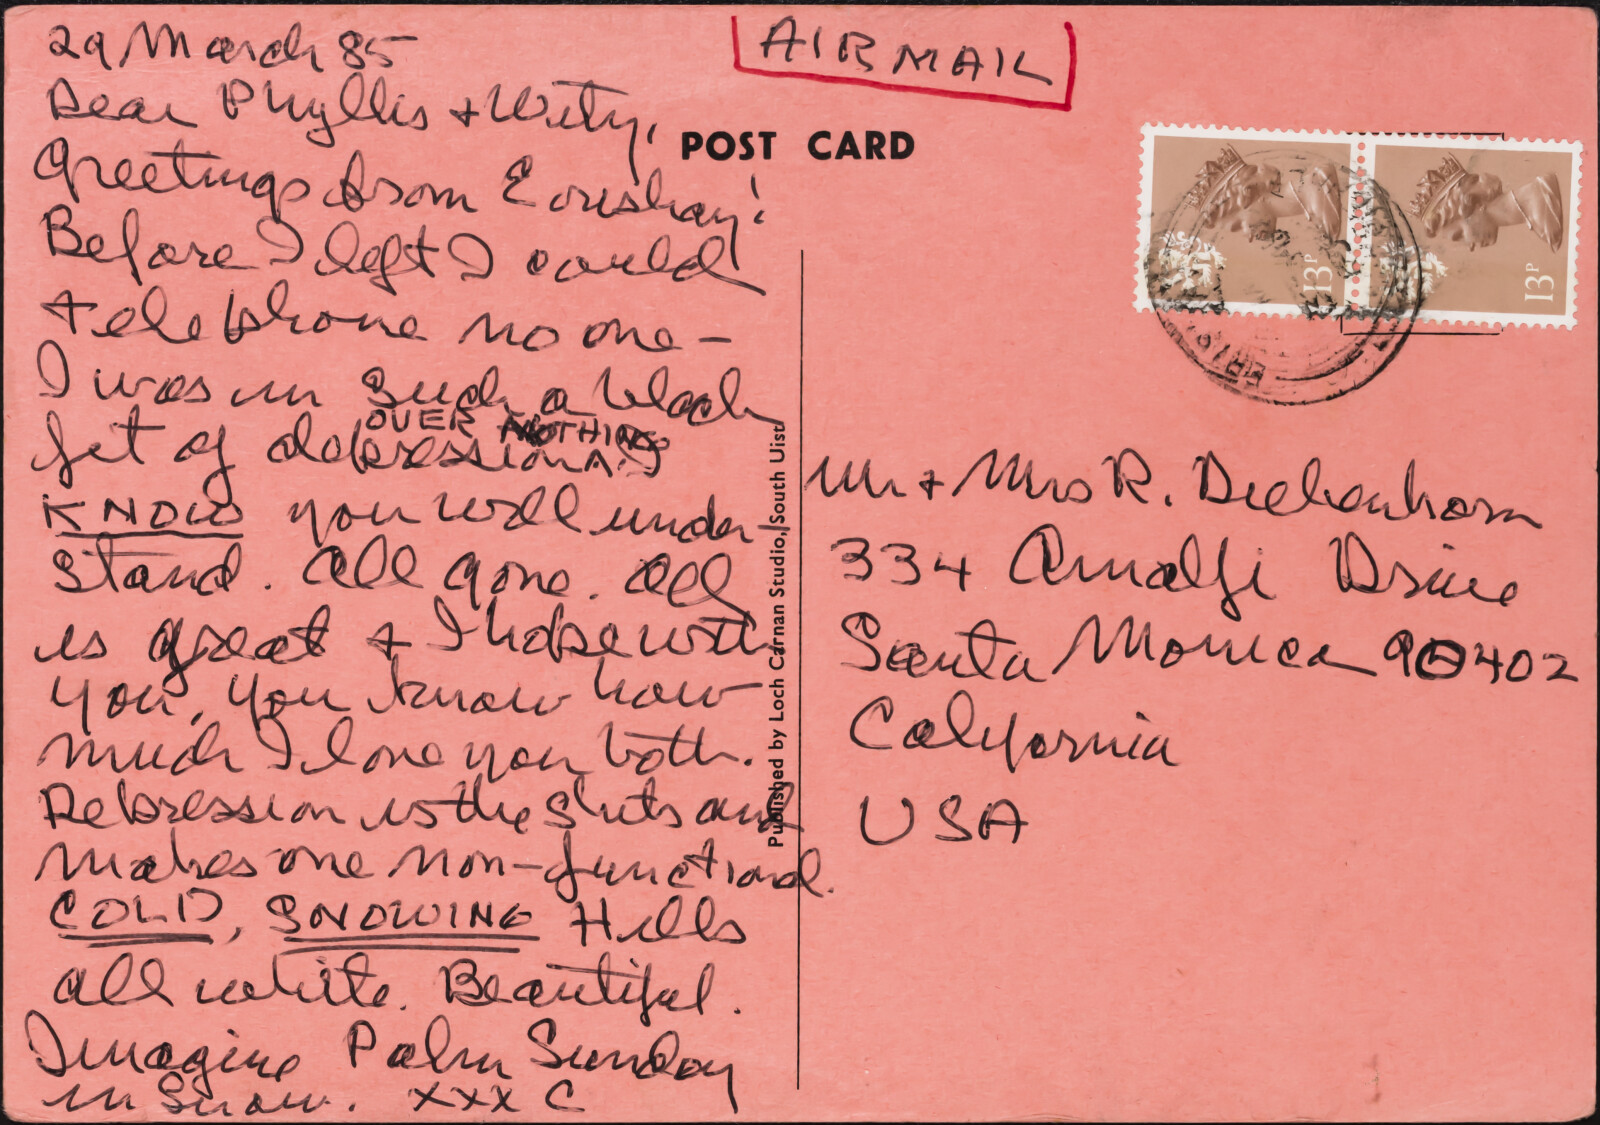 29 March 85
Dear Phyllis + Wity,
Greetings from Eriskay!
Before I left I could
telephone no one –
I was in such a black
OVER NOTHING
fit of depression. I
KNOW you will under-
stand. All gone. All
is great + I hope with
you, you know how
much I love you both.
Depression is the shits and
makes one non-functional.
COLD, SNOWING Hills
all white. Beautiful.
Imagine Palm Sunday
in snow. XXX C
AIRMAIL
POST CARD
13P
13P
Published by Loch Carnan Studio, South Uist
Mr + Mrs R. Diebenkorn
334 Amalfi Drive
Santa Monica 90402
California
USA